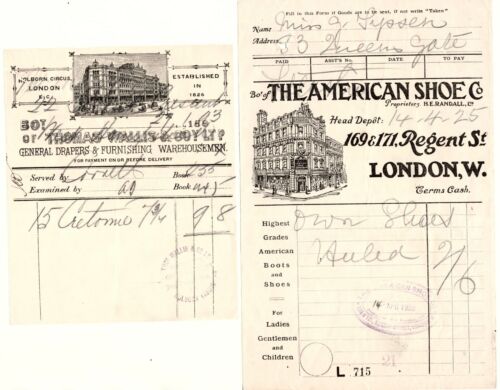 HOLBORN CIRCUS,
LONDON
ESTABLISHED
IN
1826
BOT
OF THOMAS WALLIS & COY LTD
GENERAL DRAPERS & FURNISHING WAREHOUSEMEN.
FOR PAYMENT ON OR BEFORE DELIVERY
Served by
Book 35
Examined by
Book
15 Cretonne 7¾ 9 8
Fill in this Form if Goods are to be sent, if not write "Taken"
Name Miss G Tyssen
Address 33 Queens Gate
PAID
ASST'S No.
DATE
TO PAY
Bot of THE AMERICAN SHOE Co
Proprietors H.E. RANDALL, Ld
Head Depôt: 14-4-25
169 & 171, Regent St
LONDON, W.
Terms Cash.
Highest
Grades
American
Boots and
Shoes
For
Ladies
Gentlemen
and
Children
Own Shoes
Heeled 2/6
21
L 715